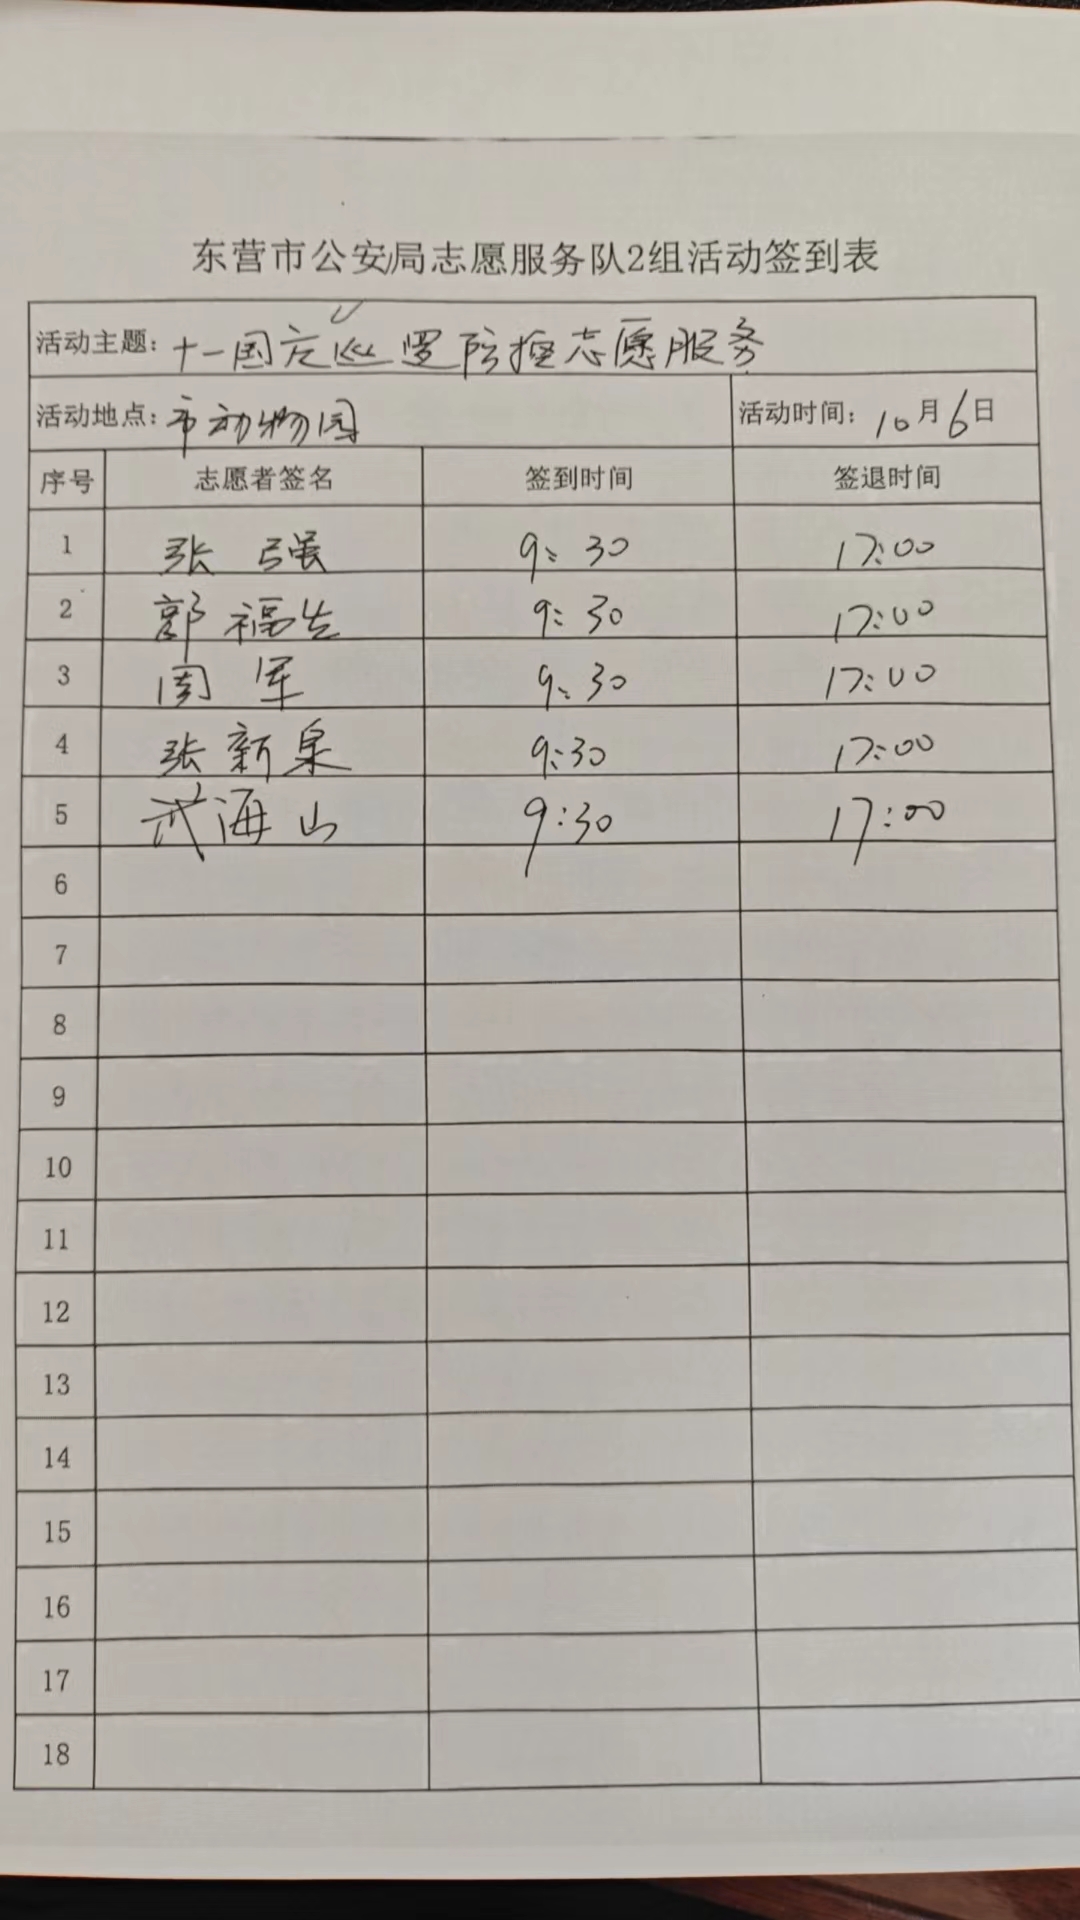 东营市公安局志愿服务队2组活动签到表
活动主题: 十一国庆巡逻防控志愿服务
活动地点: 市动物园 活动时间: 10月6日
序号 志愿者签名 签到时间 签退时间
1 张强 9:30 17:00
2 郭福生 9:30 17:00
3 周军 9:30 17:00
4 张新泉 9:30 17:00
5 武海山 9:30 17:00
6
7
8
9
10
11
12
13
14
15
16
17
18